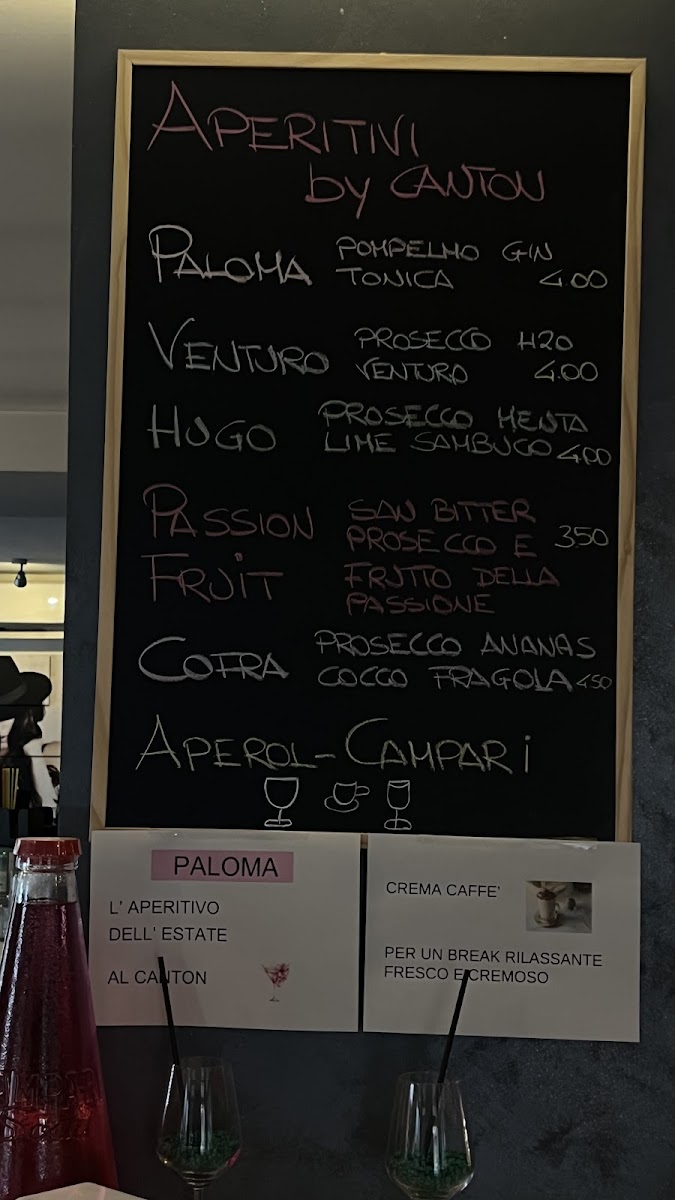 APERITIVI
by CANTON
PALOMA POMPELMO GIN
TONICA 4.00
VENTURO PROSECCO H2O
VENTURO 4.00
HUGO PROSECCO MENTA
LIME SAMBUCO 4,00
PASSION SAN BITTER
PROSECCO E 350
FRUIT FRUTTO DELLA
PASSIONE
COFRA PROSECCO ANANAS
COCCO FRAGOLA 4.50
APEROL-CAMPARi
PALOMA
L' APERITIVO
DELL' ESTATE
AL CANTON
CREMA CAFFE'
PER UN BREAK RILASSANTE
FRESCO E CREMOSO